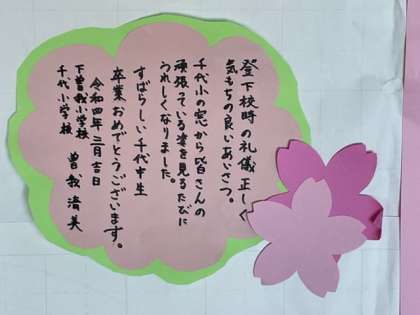 登下校時の礼儀正しく
気もちの良いあいさつ。
千代小の窓から皆さんの
頑張っている姿を見るたびに
うれしくなりました。
すばらしい千代中生
卒業おめでとうございます。
令和四年三月吉日
下曽我小学校
千代小学校 曽我清美